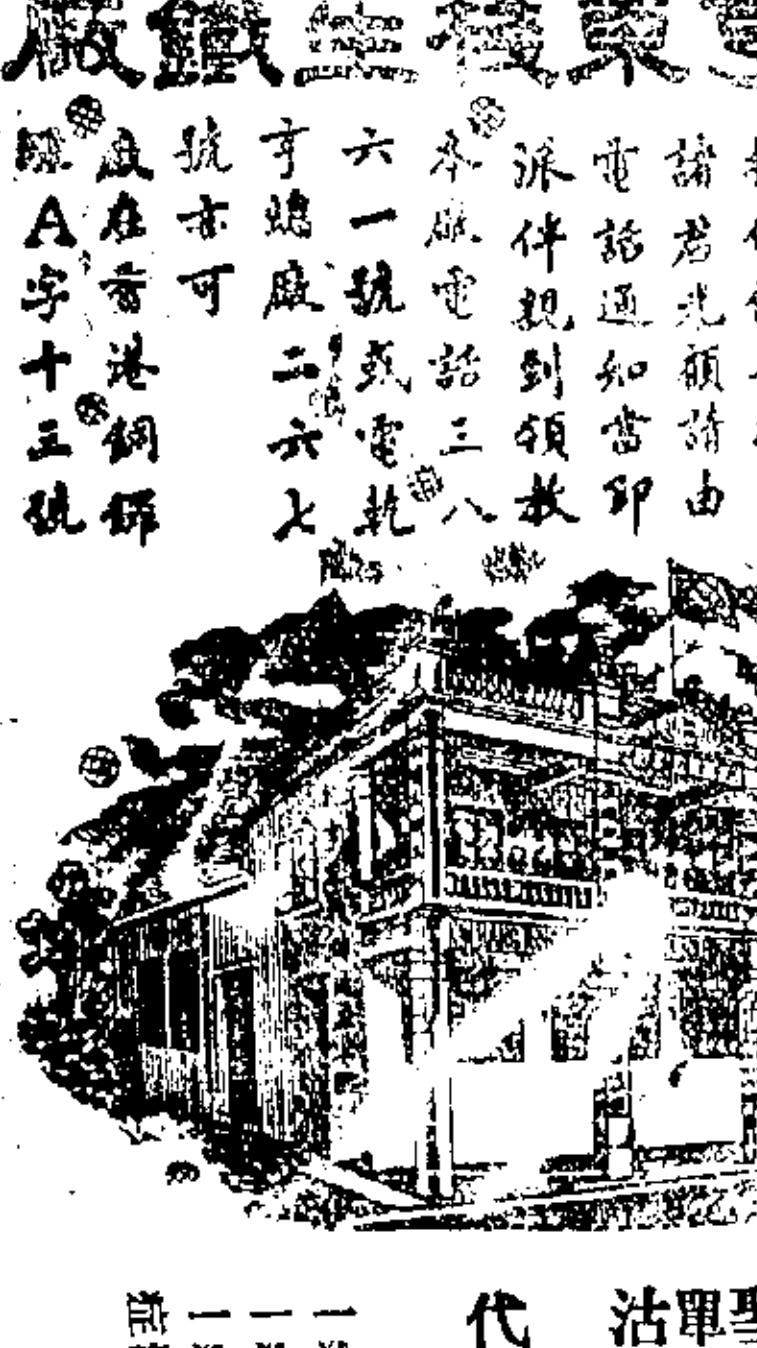 東 生鐵廠
諸君光顧請由
電話通知當即
派伴親到領教
本廠電話三八
六一號或電乾
亨總廠二六七
號亦可
廠在香港銅鑼
A字十三號
單沽
代
一
一
一